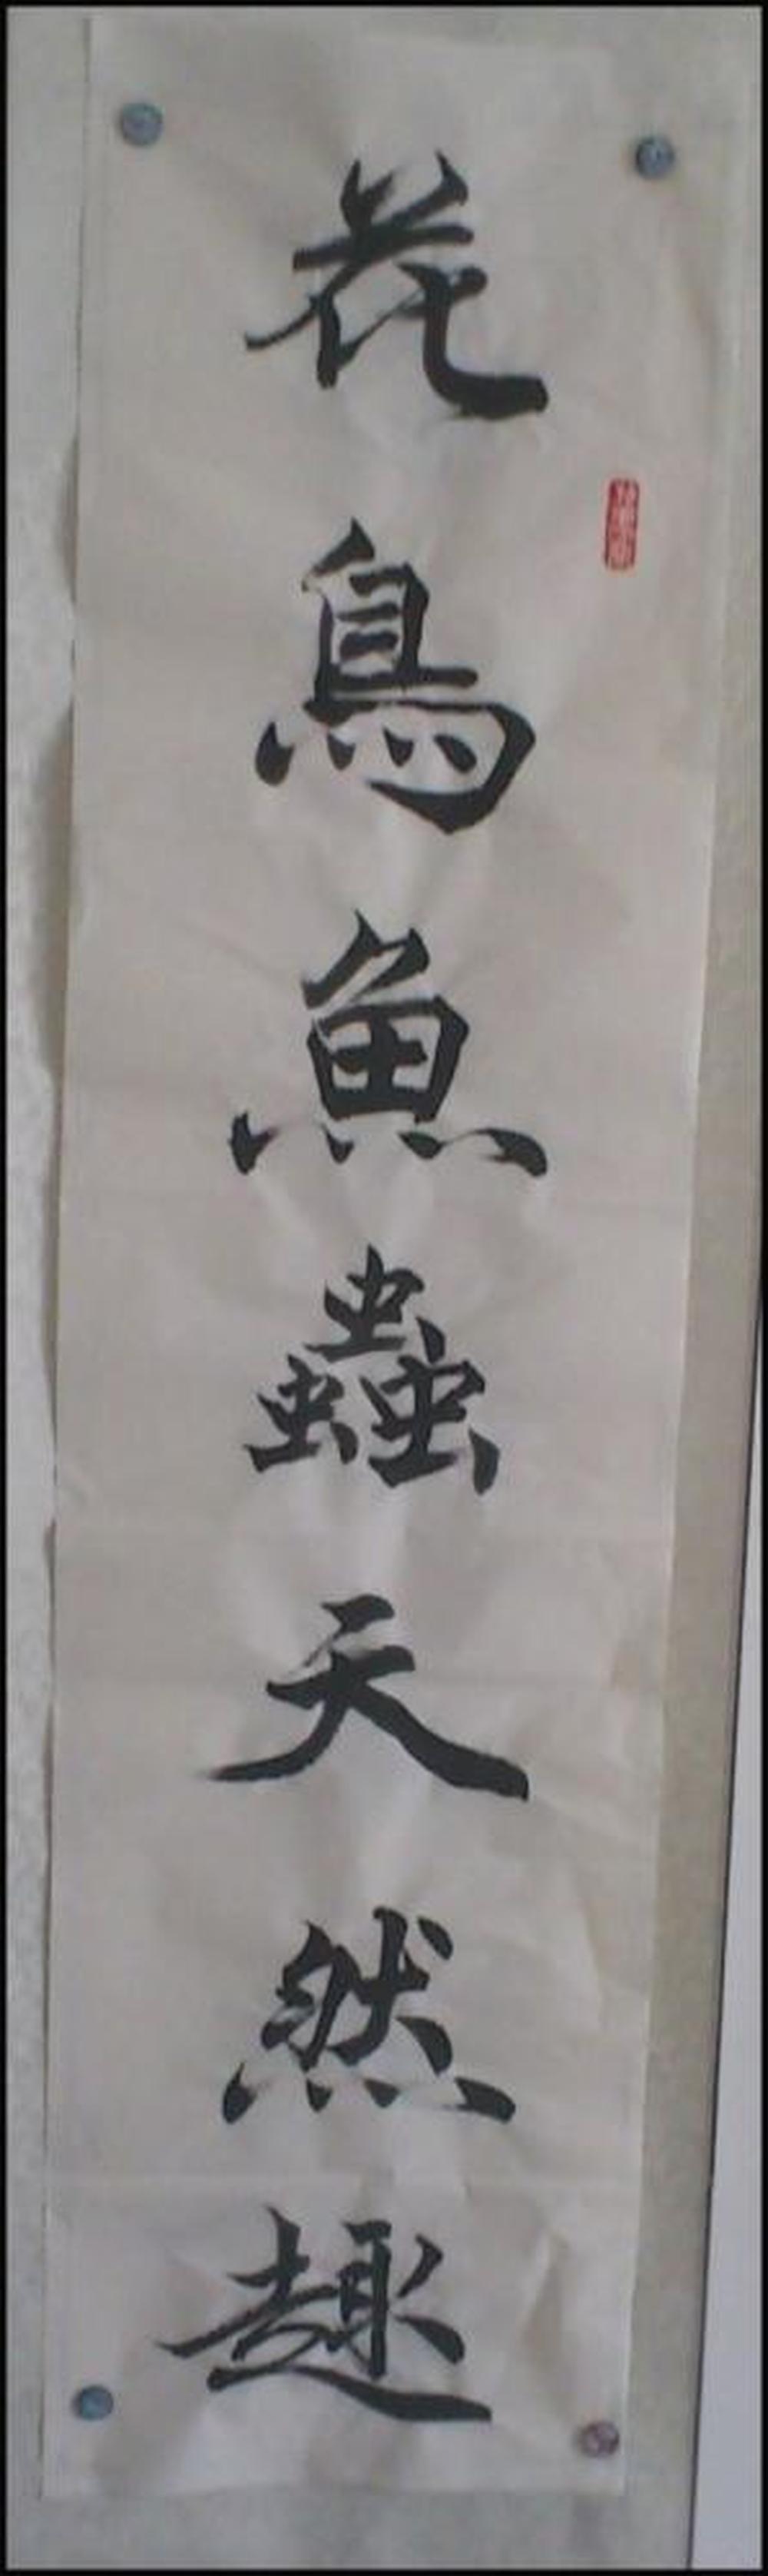 花鳥魚蟲天然趣